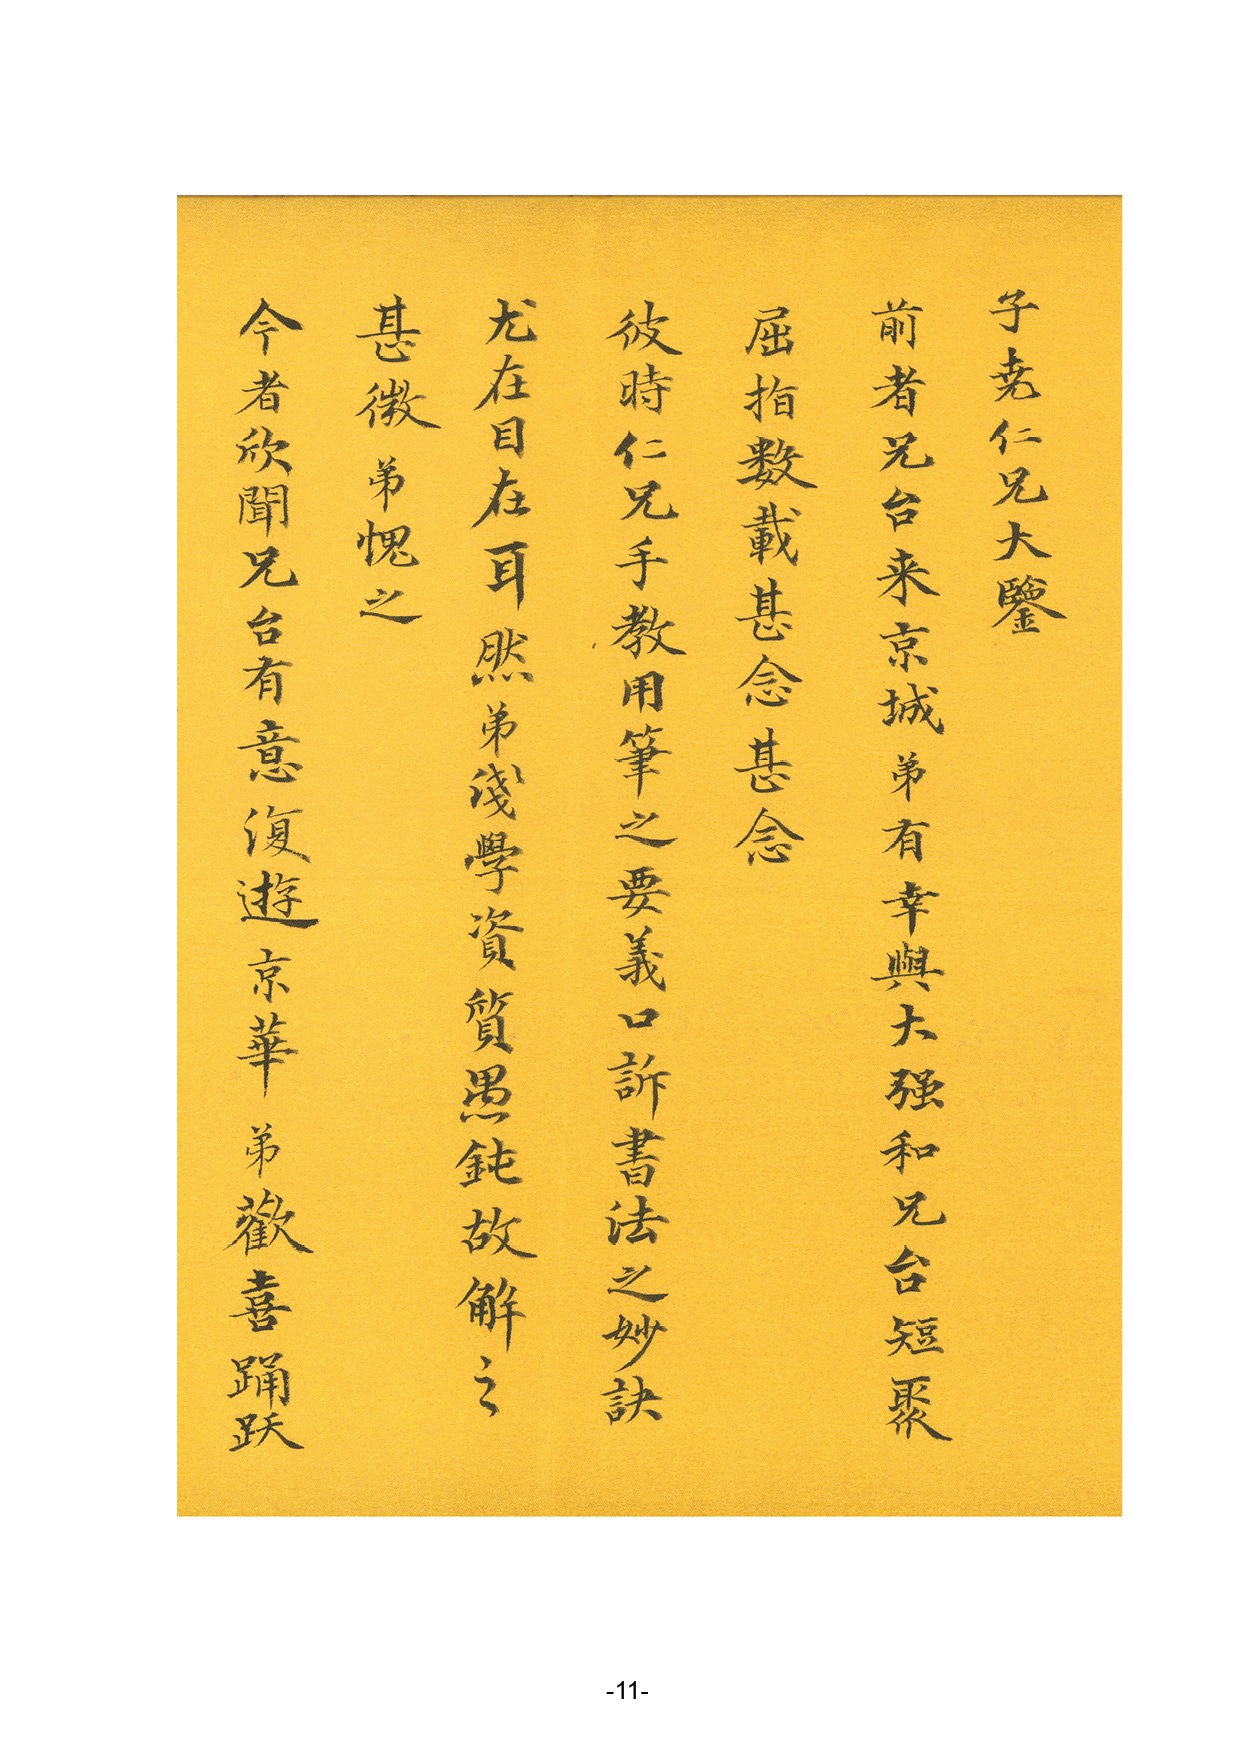 子堯仁兄大鑒
前者兄台来京城弟有幸與大强和兄台短聚
屈指数載甚念甚念
彼時仁兄手教用筆之要義口訴書法之妙訣
尤在目在耳然弟淺學資質愚鈍故解之
甚微弟愧之
今者欣聞兄台有意復遊京華弟歡喜踊跃
-11-